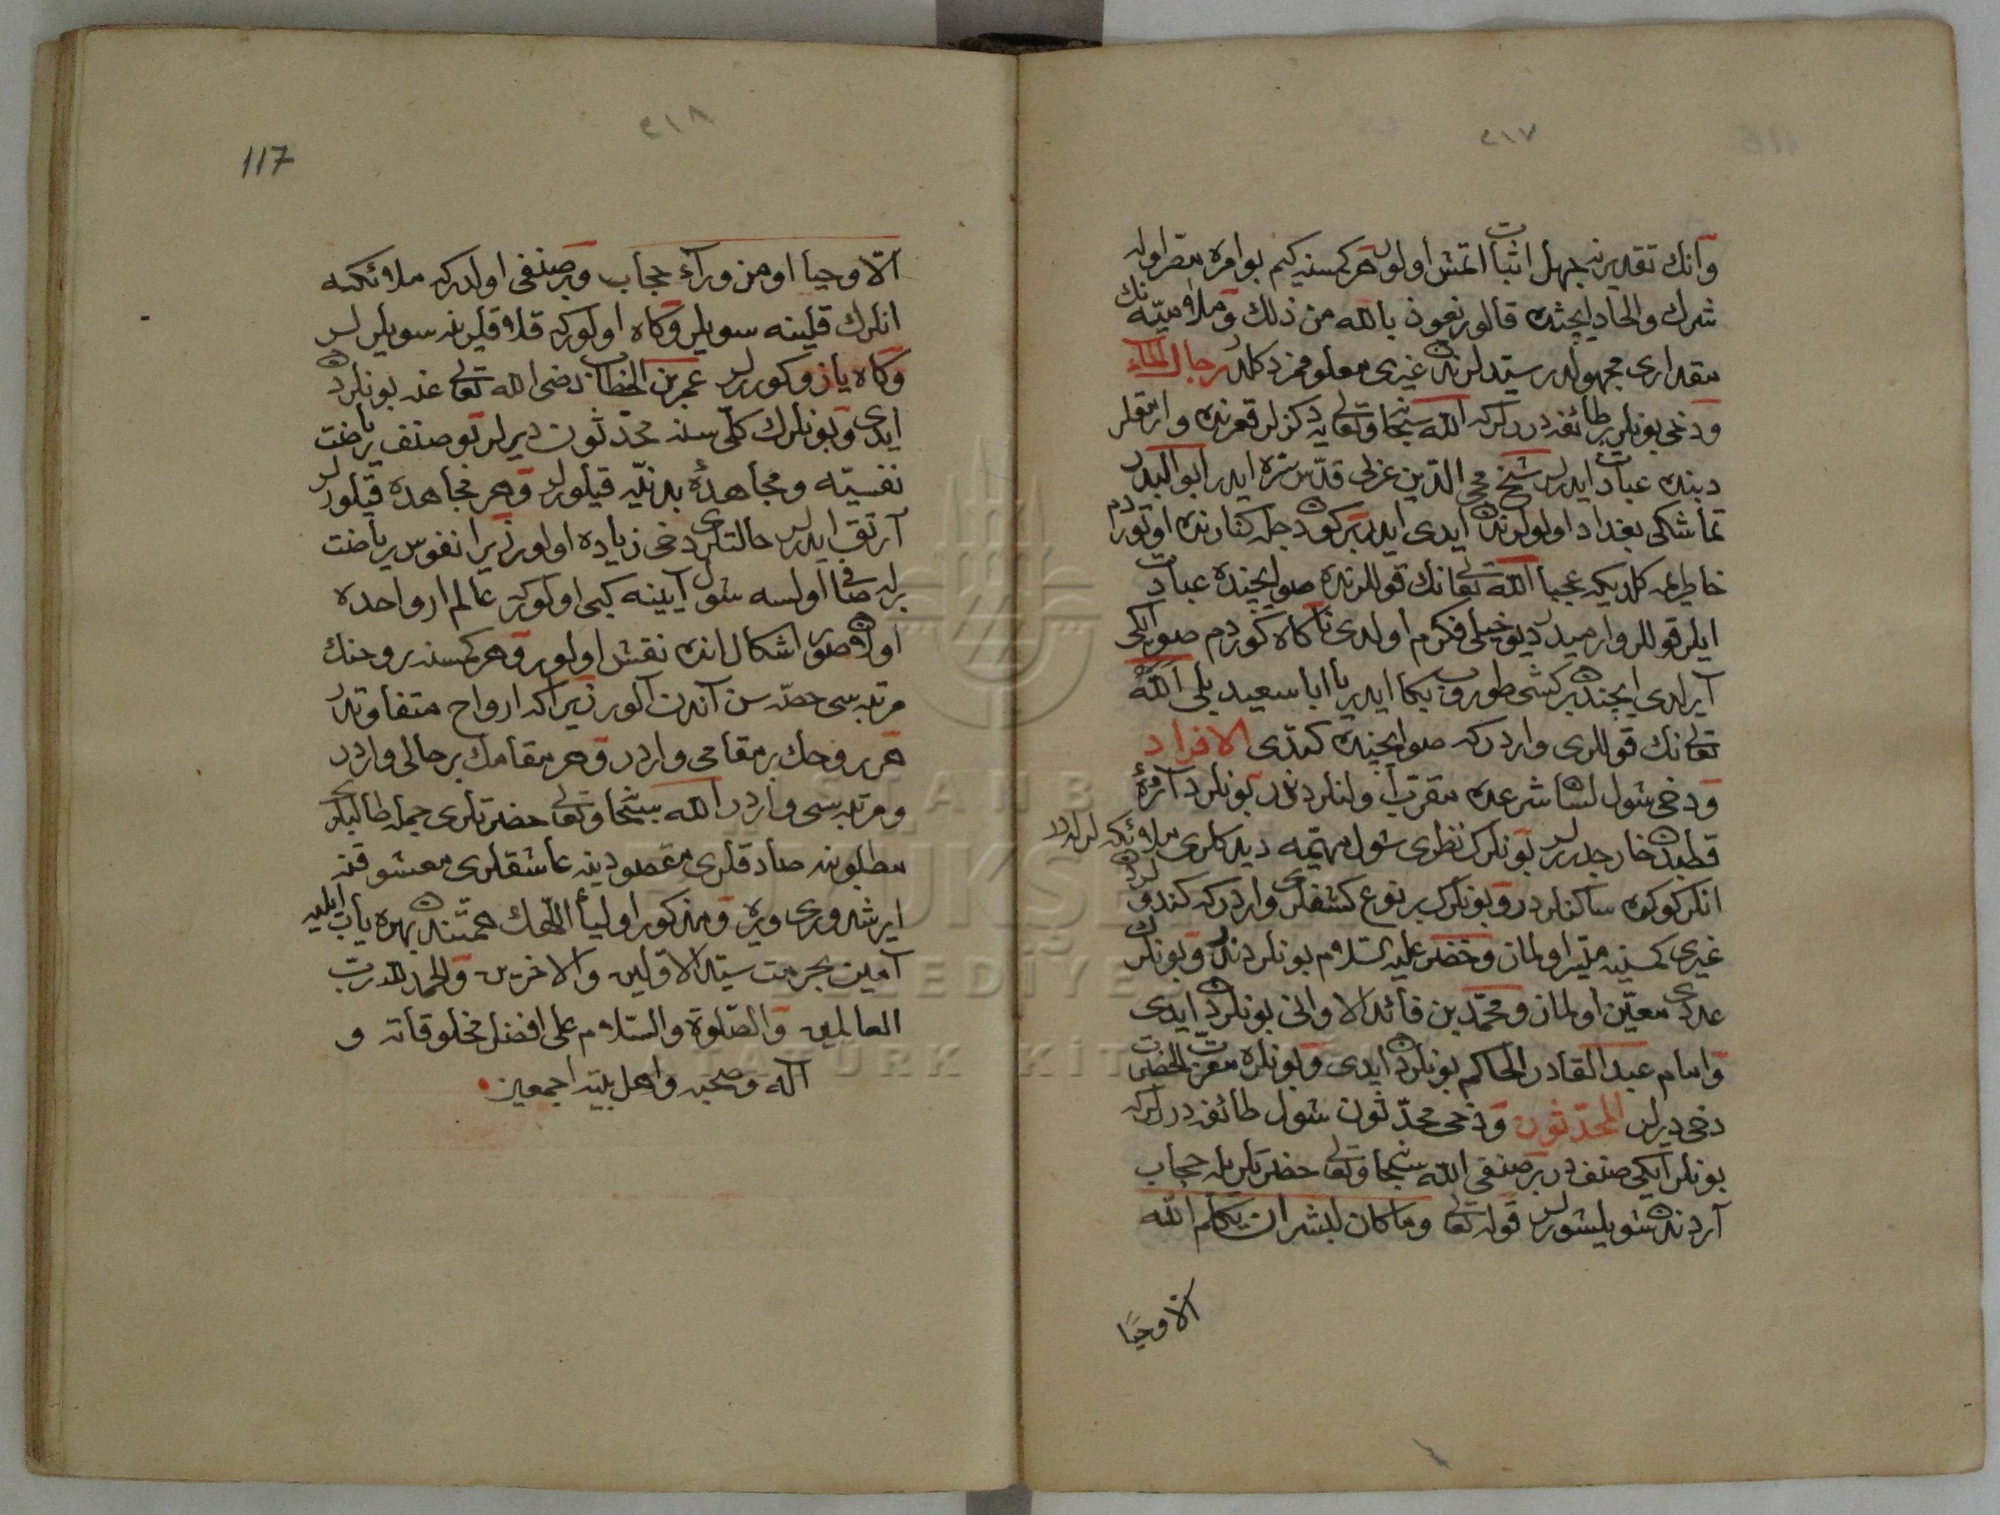 ٢١٧
وآنك تقديرينه جهل اثبات اتمش اولور هر كمسنه كيم بو امره مصر اوله
شرك والحاد ايچنده قالور نعوذ بالله من ذلك وملاميّه نك
مقدارى مجهولدر سيّدلرندن غيرى معلومز دكلدر رجال الماء
ودخى بونلر بر طائفه درلركه الله سبحانه وتعالى يه دكزلر قعرنده وارمقلر
ديبنده عبادت ايدرلر شيخ محى الدين عربى قدّس سرّه ايدر ابو البدر
تماشكى بغداد اولولرندن ايدى ايدر بر كون دجله كنارنده اوتوردم
خاطرمه كلديكه عجبا الله تعالى نك قوللرنده صو ايچنده عبادت
ايلر قوللر وارميدر ديو خيلى فكرم اولدى ناكاه كوردم صو ايكى
آيرلدى ايچندن بر كشى طوروب بكا ايدر يا ابا سعيد بلى الله
تعالى نك قوللرى واردركه صو ايچنده كندى الافراد
ودخى شول لسان شرعده مقرّب اولنلردندر بونلرد آمره
قطبدن خارجدرلر بونلرك نظرى شول مهيّمه ديدكلرى ملائكه لرلدر
انلر كوكده ساكنلردر وبونلرك بر نوع كشفلرى واردركه كندولردن
غيرى كمسنيه ميسّر اولماز وخضر عليه السلام بونلردندر وبونلرك
عددى معيّن اولماز ومحمّد بن قائد الاوانى بونلردن ايدى
وامام عبد القادر الحاكم بونلردن ايدى وبونلره مقرّبت الحضرت
دخى ديرلر المحدّثون ودخى محدّثون شول طائفه درلركه
بونلر ايكى صنفدر بر صنفى الله سبحانه وتعالى حضرتلريله حجاب
آردندن سويلشورلر قوله تعالى وما كان لبشر ان يكلّم الله
الا وحيًا
٢١٨
117
الّا وحيا او من ورآء حجاب وبر صنفى اولدركه ملائكه
انلرك قلبنه سويلر وكاه اولوركه قلاقلرينه سويلرلر
وكاه يازو كوررلر عمر بن الخطاب رضى الله تعالى عنه بونلردن
ايدى وبونلرك كلّيسنه محدّثون ديرلر بو صنف رياضت
نفسيّه ومجاهدهٔ بدنيّه قيلورلر وهر مجاهده قيلورلر
آرتق ايدرلر حالتلرى دخى زياده اولور زيرا نفوس رياضت
برله صافى اولسه شول آيينه كبى اولوركه عالم ارواحده
اولان صور اشكال انده نقش اولور وهر كمسنه روحنك
مرتبه سى حصّه سن آندن آلور زيرا كه ارواح متفاوتدر
هر بر روحك بر مقامى واردر وهر مقامك بر حالى واردر
ومرتبه سى واردر الله سبحانه وتعالى حضرتلرى جمله طالبلرى
مطلوبنه صادقلرى مقصودينه عاشقلرى معشوقنه
ايرشدوری ويره ومذكور اولياء اللهك همّتندن بهره ياب ايليه
آمين بحرمت سيّد الاوّلين والاخرين والحمد لله ربّ
العالمين والصّلوة والسّلام على افضل مخلوقاته و
آله وصحبه واهل بيته اجمعين